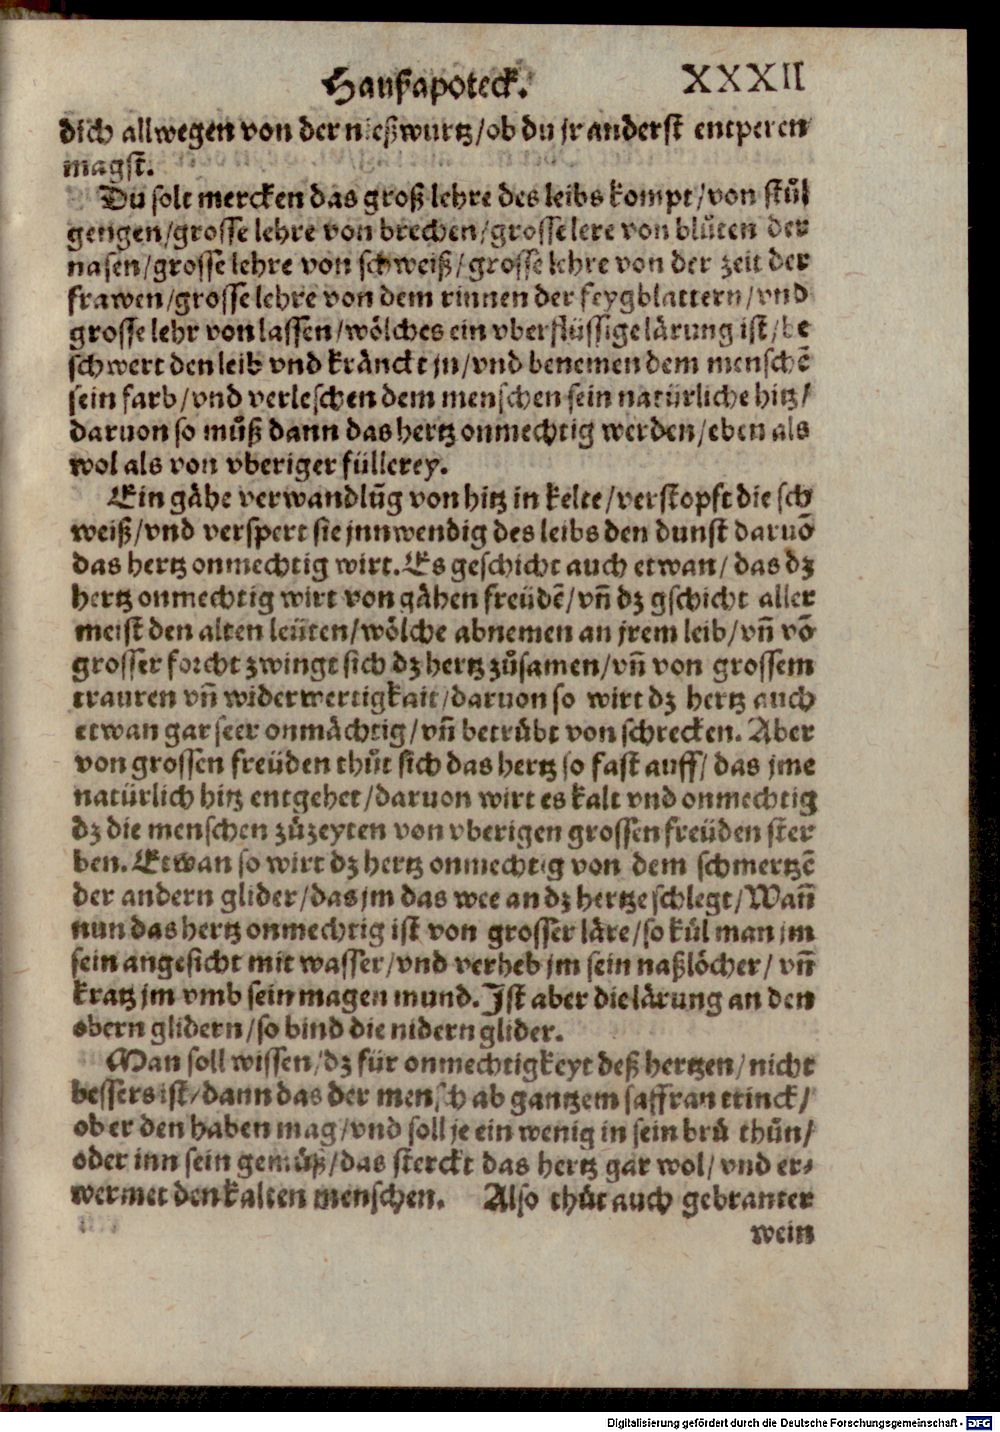 Haußapoteck. XXXII
dich allwegen von der nießwurtz/ob du jr anderst entperen
magst.
Du solt mercken das groß lehre des leibs kompt/von stůl
gengen/grosse lehre von brechen/grosse lere von blůten der
nasen/grosse lehre von schweiß/grosse lehre von der zeit der
frawen/grosse lehre von dem rinnen der feygblattern/vnd
grosse lehr von lassen/wölches ein vberflüssige lärung ist/be
schwert den leib vnd kränckt jn/vnd benemen dem menschē
sein farb/vnd verleschen dem menschen sein natürliche hitz/
daruon so můß dann das hertz onmechtig werden/eben als
wol als von vberiger füllerey.
Ein gähe verwandlūg von hitz in kelte/verstopft die sch
weiß/vnd verspert sie jnnwendig des leibs den dunst daruō
das hertz onmechtig wirt. Es geschicht auch etwan/das dz
hertz onmechtig wirt von gähen freüdē/vn̄ dz gschicht aller
meist den alten leüten/wölche abnemen an jrem leib/vn̄ vō
grosser forcht zwingt sich dz hertz zůsamen/vn̄ von grossem
trauren vn̄ widerwertigkait/daruon so wirt dz hertz auch
etwan gar seer onmächtig/vn̄ betrübt von schrecken. Aber
von grossen freüden thůt sich das hertz so fast auff/das jme
natürlich hitz entgehet/daruon wirt es kalt vnd onmechtig
dz die menschen zůzeyten von vberigen grossen freüden ster
ben. Etwan so wirt dz hertz onmechtig von dem schmertzē
der andern glider/das jm das wee an dz hertze schlegt/Wan̄
nun das hertz onmechtig ist von grosser läre/so kül man jm
sein angesicht mit wasser/vnd verheb jm sein naßlöcher/vn̄
kratz jm vmb sein magen mund. Ist aber die lärung an den
obern glidern/so bind die nidern glider.
Man soll wissen/dz für onmechtigkeyt deß hertzen/nicht
bessers ist/dann das der mensch ab gantzem saffran trinck/
ob er den haben mag/vnd soll je ein wenig in sein brü thůn/
oder inn sein gemüß/das sterckt das hertz gar wol/vnd er⸗
wermet den kalten menschen. Also thůt auch gebranter
wein
Digitalisierung gefördert durch die Deutsche Forschungsgemeinschaft - DFG